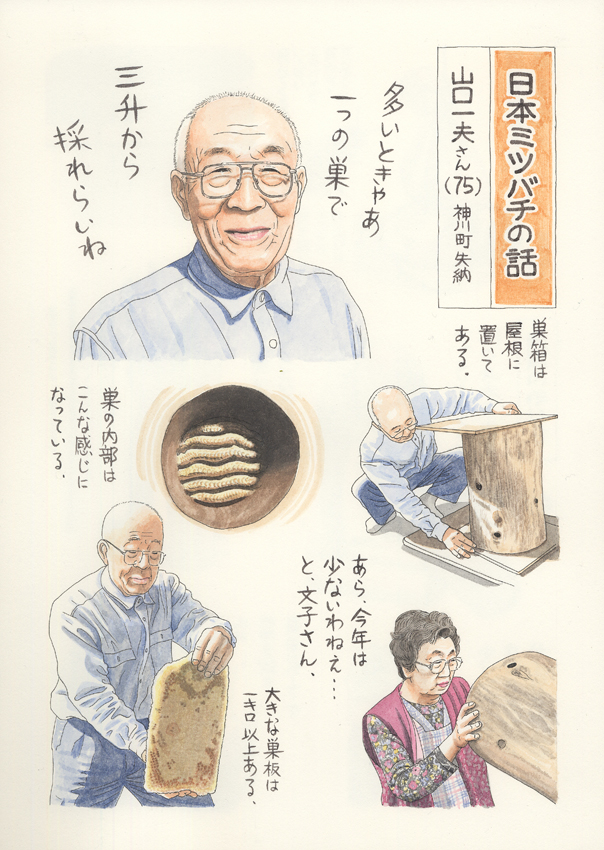 日本ミツバチの話
山口一夫さん(75) 神川町矢納
多いときゃあ
一つの巣で
三升から
採れらいね
巣箱は
屋根に
置いて
ある。
巣の内部は
こんな感じに
なっている。
あら、今年は
少ないわねえ…
と、文子さん、
大きな巣板は
一キロ以上ある、